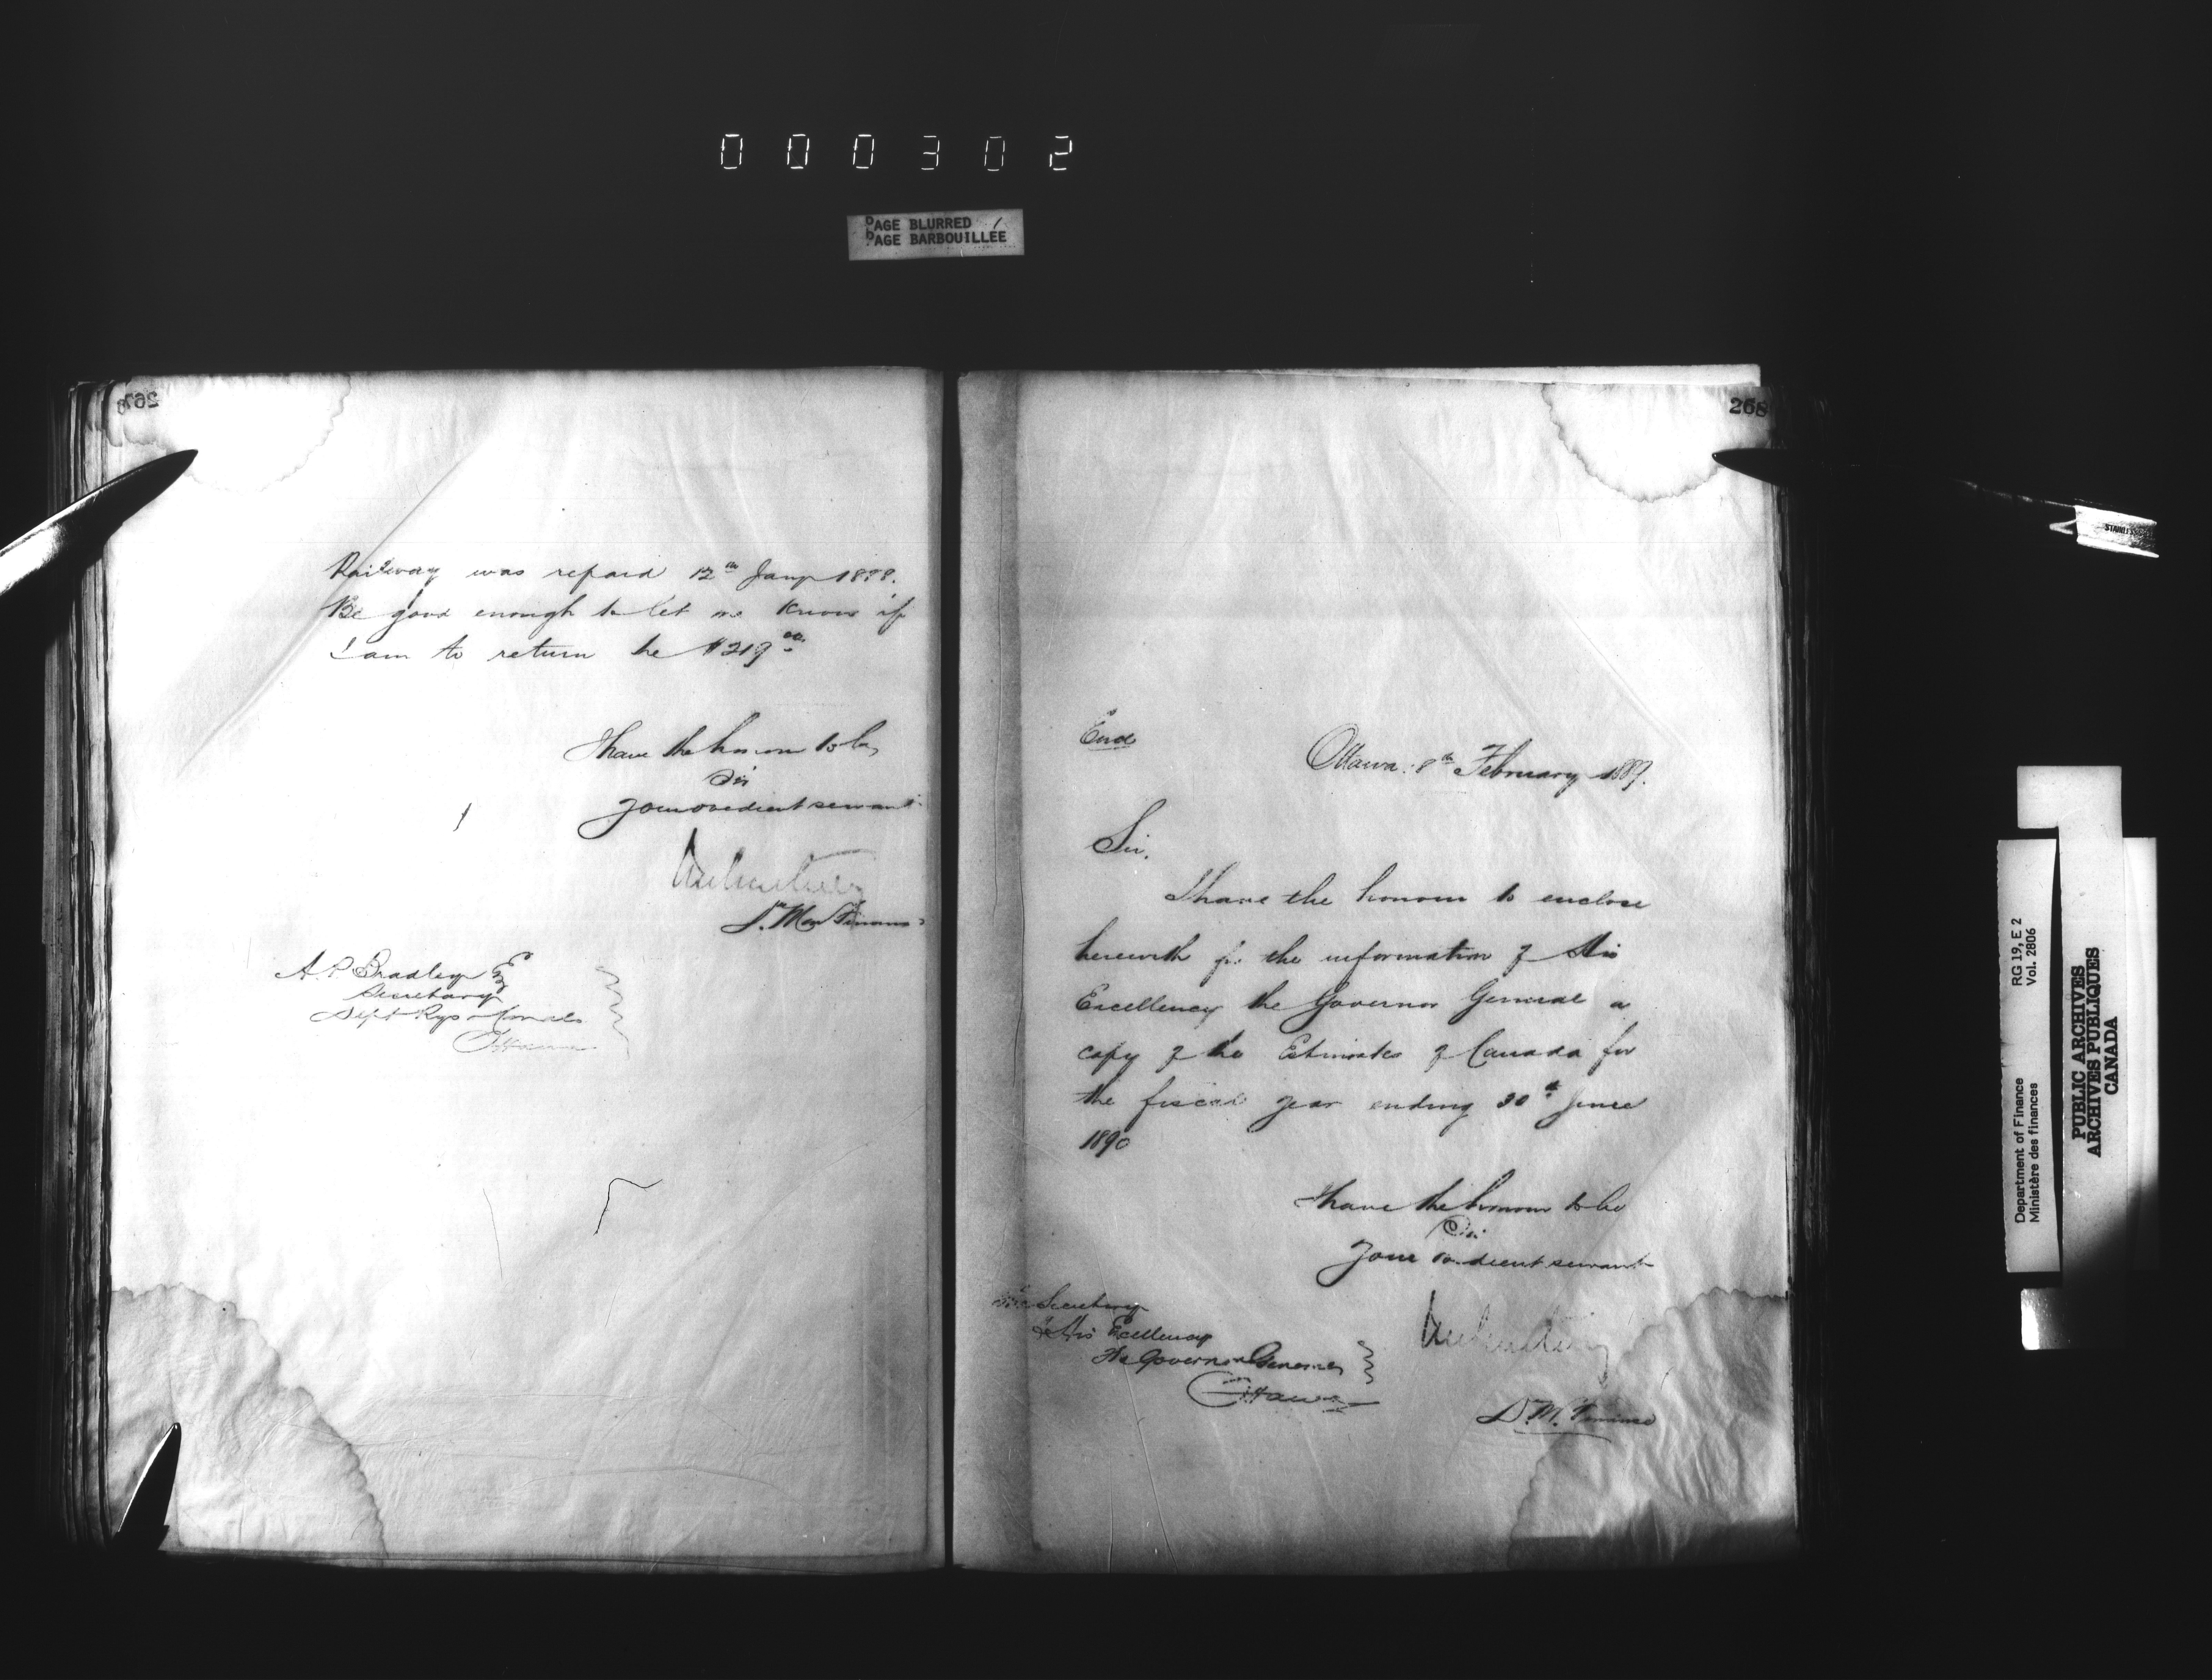 000302
PAGE BLURRED
PAGE BARBOUILLÉE
267
Railway was repaid 12th Jany 1888.
Be good enough to let me know if
I am to return the $219.00
I have the honour to be
Sir
Your obedient servant
D. Mr Finance
A. P. Bradley Esq
Secretary
Dept Rys & Canals
Ottawa
268
Encl
Ottawa: 8th February 1889.
Sir,
I have the honour to enclose
herewith for the information of His
Excellency the Governor General a
copy of the Estimates of Canada for
the fiscal year ending 30th June
1890
I have the honour to be
Sir
Your obedient servant
The Secretary
to His Excellency
The Governor General
Ottawa
D. M. Finance
STAINLESS
Department of Finance
Ministère des finances
RG 19, E 2
Vol. 2806
PUBLIC ARCHIVES
ARCHIVES PUBLIQUES
CANADA